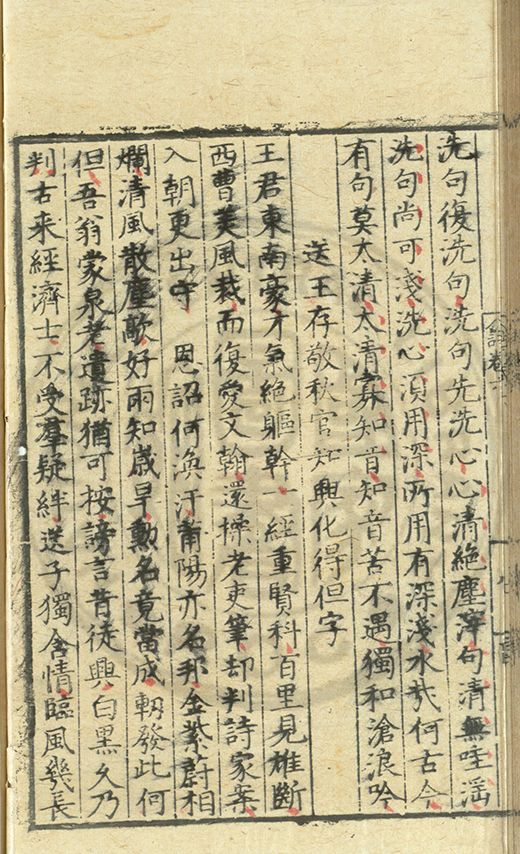 洗句復洗句洗句先洗心心清絶塵滓句清無哇滛
洗句尚可淺洗心湏用深所用有深淺水㢤何古今
有句莫太清太清寡知音知音苦不遇獨和滄浪吟
送王存敬秋官知興化得但字
王君東南豪才氣絶軀幹一經重賢科百里見雄斷
西曹美風裁而復愛文翰還操老吏筆却判詩家案
入朝更出守 恩詔何渙汗莆陽亦名邦金紫蔚相
爛清風散塵歊好雨知歳早勲名竟當成軔發此何
但吾翁蒙泉老遺跡猶可按謗言昔徒興白黒久乃
判古来經濟士不受羣疑絆送子獨含情臨風幾長